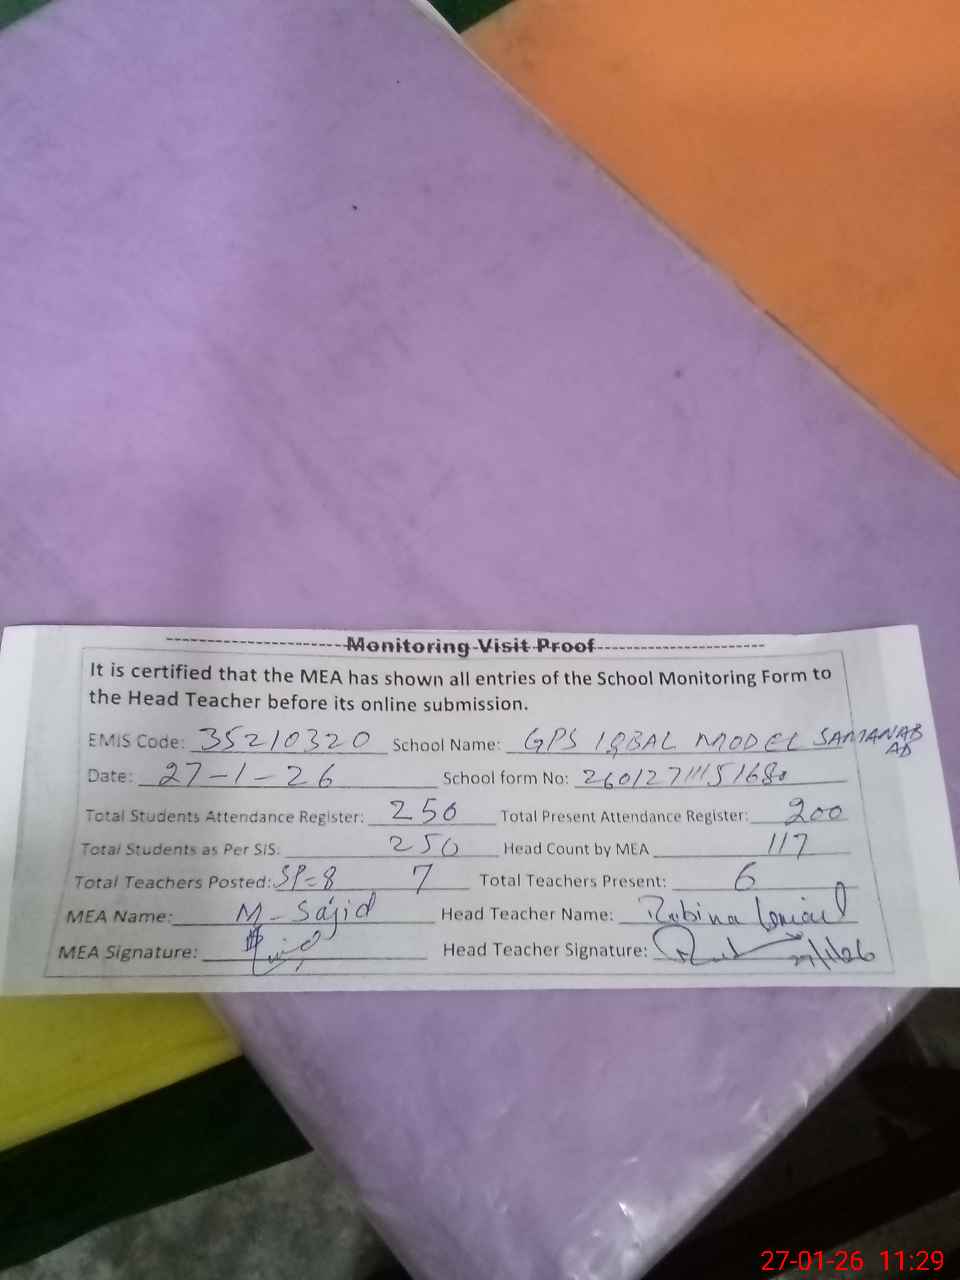 Monitoring Visit Proof
It is certified that the MEA has shown all entries of the School Monitoring Form to
the Head Teacher before its online submission.
EMIS Code: 35210320 School Name: GPS IQBAL MODEL SAMANAB
AD
Date: 27-1-26 School form No:
Total Students Attendance Register: 250 Total Present Attendance Register: 200
Total Students as Per SIS: 250 Head Count by MEA 117
Total Teachers Posted: SP=8 7 Total Teachers Present: 6
MEA Name: M-Sajid Head Teacher Name: Rubina
MEA Signature: Head Teacher Signature: 27/1/26
27-01-26 11:29